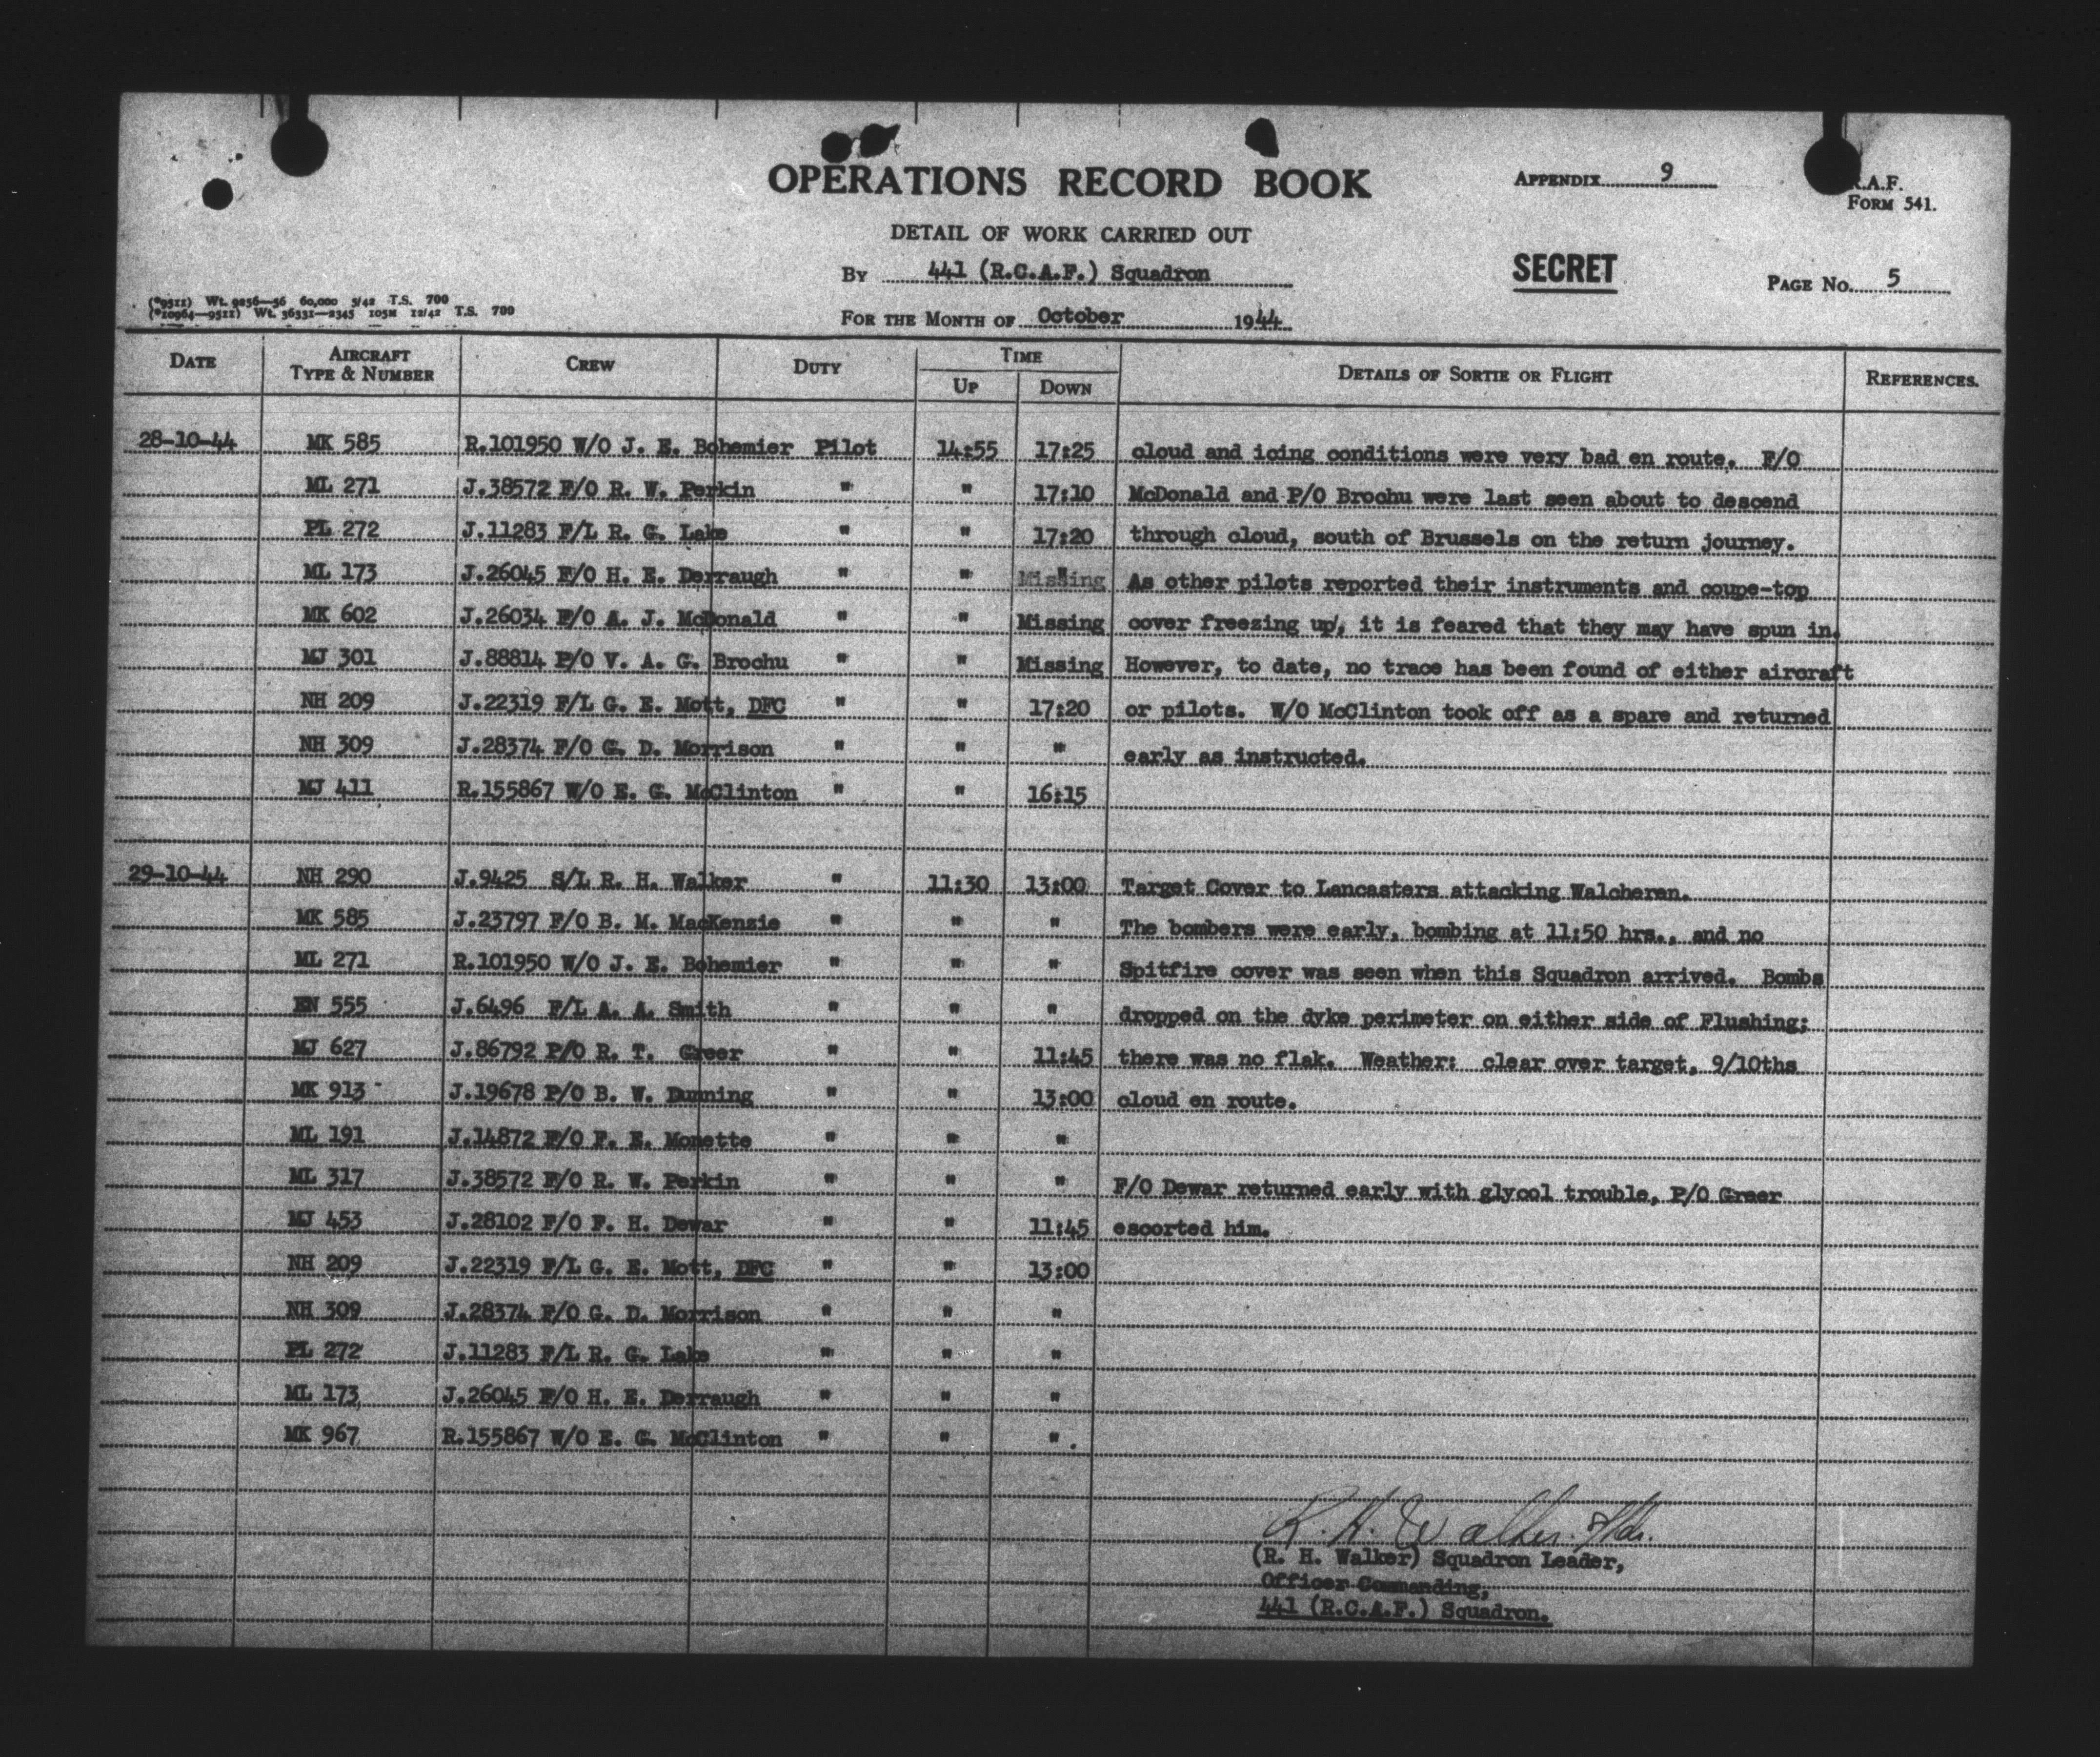 OPERATIONS RECORD BOOK
APPENDIX 9
R.A.F.
FORM 541.
DETAIL OF WORK CARRIED OUT
BY 441 (R.C.A.F.) Squadron
SECRET
PAGE No. 5
(*9511) Wt. 9256—56 60,000 5/42 T.S. 700
(*10964—9511) Wt. 36331—2345 105M 12/42 T.S. 700
FOR THE MONTH OF October 1944
DATE AIRCRAFT TYPE & NUMBER CREW DUTY TIME UP DOWN DETAILS OF SORTIE OR FLIGHT REFERENCES.
28-10-44 MK 585 R.101950 W/O J. E. Bohemier Pilot 14:55 17:25 cloud and icing conditions were very bad en route. F/O
ML 271 J.38572 F/O R. W. Perkin " " 17:10 McDonald and P/O Brochu were last seen about to descend
PL 272 J.11283 F/L R. G. Lake " " 17:20 through cloud, south of Brussels on the return journey.
ML 173 J.26045 F/O H. E. Derraugh " " " As other pilots reported their instruments and coupe-top
MK 602 J.26034 F/O A. J. McDonald " " Missing cover freezing up, it is feared that they may have spun in.
MJ 301 J.88814 P/O V. A. G. Brochu " " Missing However, to date, no trace has been found of either aircraft
NH 209 J.22319 F/L G. E. Mott, DFC " " 17:20 or pilots. W/O McClinton took off as a spare and returned
NH 309 J.28374 F/O G. D. Morrison " " " early as instructed.
MJ 411 R.155867 W/O E. G. McClinton " " 16:15
29-10-44 NH 290 J.9425 S/L R. H. Walker " 11:30 13:00 Target Cover to Lancasters attacking Walcheren.
MK 585 J.23797 F/O B. M. MacKenzie " " " The bombers were early, bombing at 11:50 hrs., and no
ML 271 R.101950 W/O J. E. Bohemier " " " Spitfire cover was seen when this Squadron arrived. Bombs
EN 555 J.6496 F/L A. A. Smith " " " dropped on the dyke perimeter on either side of Flushing;
MJ 627 J.86792 P/O R. T. Greer " " 11:45 there was no flak. Weather: clear over target, 9/10ths
MK 913 J.19678 P/O B. W. Dunning " " 13:00 cloud en route.
ML 191 J.14872 F/O F. E. Monette " " "
ML 317 J.38572 F/O R. W. Perkin " " " F/O Dewar returned early with glycol trouble, P/O Greer
MJ 453 J.28102 F/O F. H. Dewar " " 11:45 escorted him.
NH 209 J.22319 F/L G. E. Mott, DFC " " 13:00
NH 309 J.28374 F/O G. D. Morrison " " "
PL 272 J.11283 F/L R. G. Lake " " "
ML 173 J.26045 F/O H. E. Derraugh " " "
MK 967 R.155867 W/O E. G. McClinton " " ".
R. H. Walker S/Ldr.
(R. H. Walker) Squadron Leader,
Officer Commanding,
441 (R.C.A.F.) Squadron.